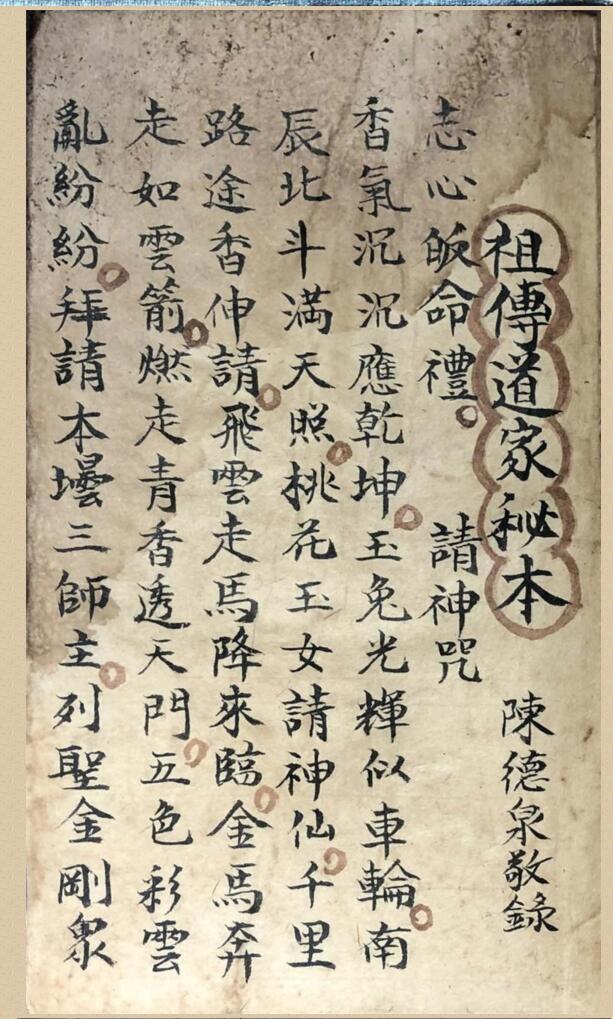 祖傳道家秘本 陳德泉敬錄
志心皈命禮 請神咒
香氣沉沉應乾坤玉兔光輝似車輪南
辰北斗滿天照桃花玉女請神仙千里
路途香伸請飛雲走馬降來臨金馬奔
走如雲箭燃走青香透天門五色彩雲
亂紛紛拜請本壇三師主列聖金剛眾